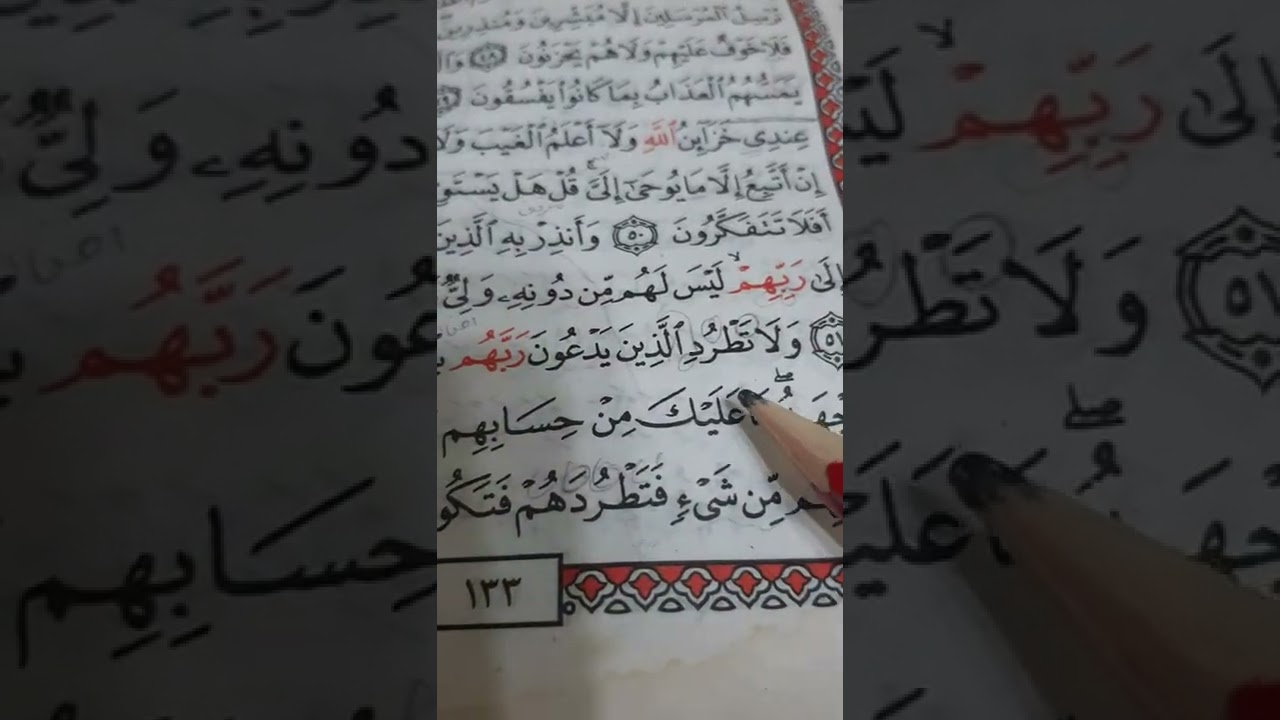 نُرْسِلُ ٱلْمُرْسَلِينَ إِلَّا مُبَشِّرِينَ وَمُنذِرِينَ
فَلَا خَوْفٌ عَلَيْهِمْ وَلَا هُمْ يَحْزَنُونَ ٤٨
يَمَسُّهُمُ ٱلْعَذَابُ بِمَا كَانُوا۟ يَفْسُقُونَ
عِندِي خَزَآئِنُ ٱللَّهِ وَلَآ أَعْلَمُ ٱلْغَيْبَ وَلَا
إِنْ أَتَّبِعُ إِلَّا مَا يُوحَىٰٓ إِلَىَّ ۚ قُلْ هَلْ يَسْتَوِ
أَفَلَا تَتَفَكَّرُونَ ٥٠ وَأَنذِرْ بِهِ ٱلَّذِينَ
إِلَىٰ رَبِّهِمْ ۙ لَيْسَ لَهُم مِّن دُونِهِۦ وَلِىٌّ
٥١ وَلَا تَطْرُدِ ٱلَّذِينَ يَدْعُونَ رَبَّهُم
عَلَيْكَ مِنْ حِسَابِهِم
مِّن شَىْءٍ فَتَطْرُدَهُمْ فَتَكُو
١٣٣